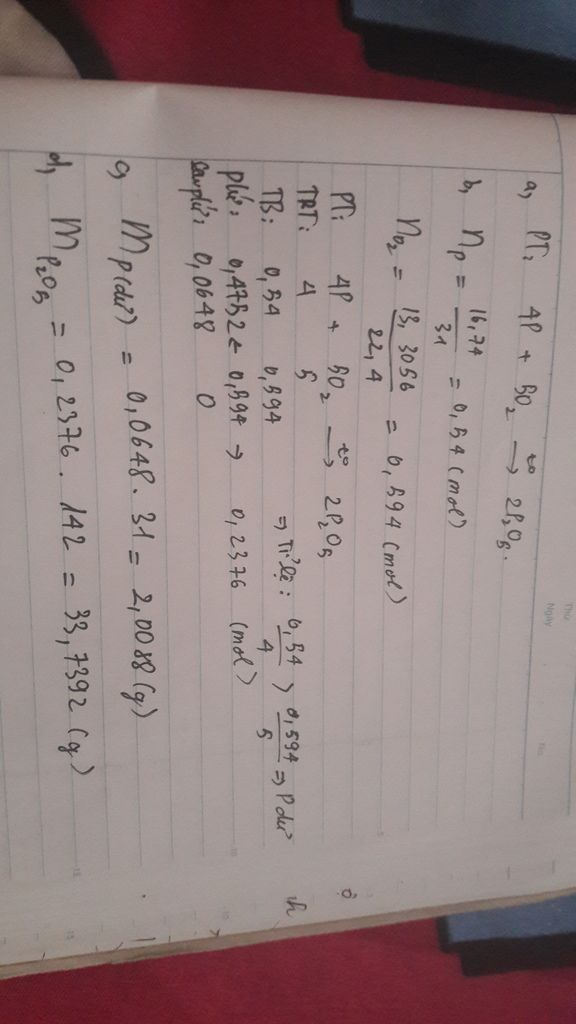 Thứ
Ngày
No.
a, PT: 4P + 5O₂ —t°→ 2P₂O₅.
b, nP = 16,74/31 = 0,54 (mol)
nO₂ = 13,3056/22,4 = 0,594 (mol)
PT: 4P + 5O₂ —t°→ 2P₂O₅
TRT: 4 5
TB: 0,54 0,594 ⇒ Tỉ lệ: 0,54/4 > 0,594/5 ⇒ P dư
pứ: 0,4752 ← 0,594 → 0,2376 (mol)
sau pứ: 0,0648 0
c, mP(dư) = 0,0648 . 31 = 2,0088 (g)
d, mP₂O₅ = 0,2376 . 142 = 33,7392 (g)